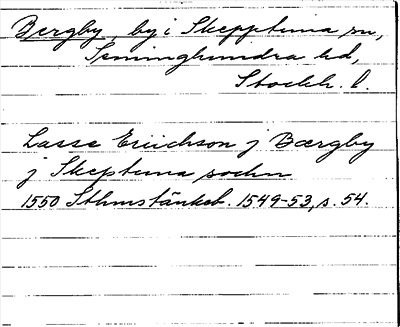 Bergby, by i Skepptuna sn,
Seminghundra hd,
Stockh. l.
Lasse Eriichson j Bærgby
j Skeptuna sochn
1550 Sthmstänkeb. 1549-53, s. 54.